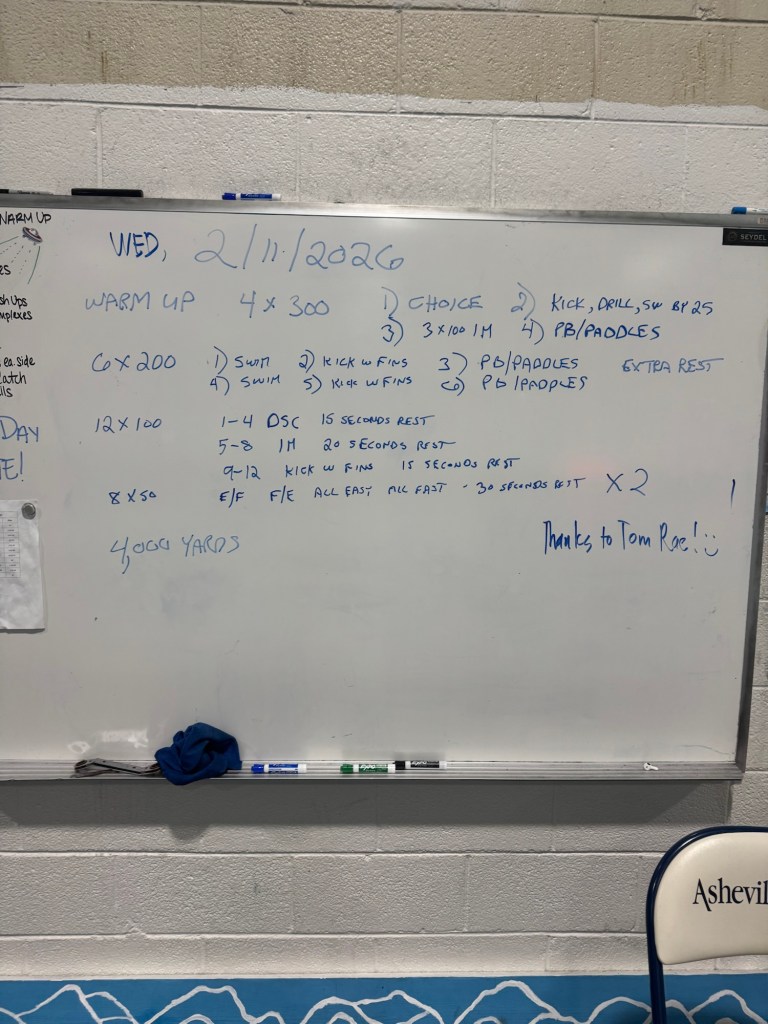 WARM UP
es
sh Ups
mplexes
ea. side
Catch
lls
DAY
E!
WED, 2/11/2026
WARM UP 4 x 300 1) CHOICE 2) KICK, DRILL, SW BY 25
3) 3 x 100 IM 4) PB/PADDLES
6 x 200 1) SWIM 2) KICK W FINS 3) PB/PADDLES EXTRA REST
4) SWIM 5) KICK W FINS 6) PB/PADDLES
12 x 100 1-4 DSC 15 SECONDS REST
5-8 IM 20 SECONDS REST
9-12 KICK W FINS 15 SECONDS REST
8 x 50 E/F F/E ALL EASY ALL FAST - 30 SECONDS REST x 2
4,000 YARDS
Thanks to Tom Rae!
SEYDEL
EXPO
Ashevil